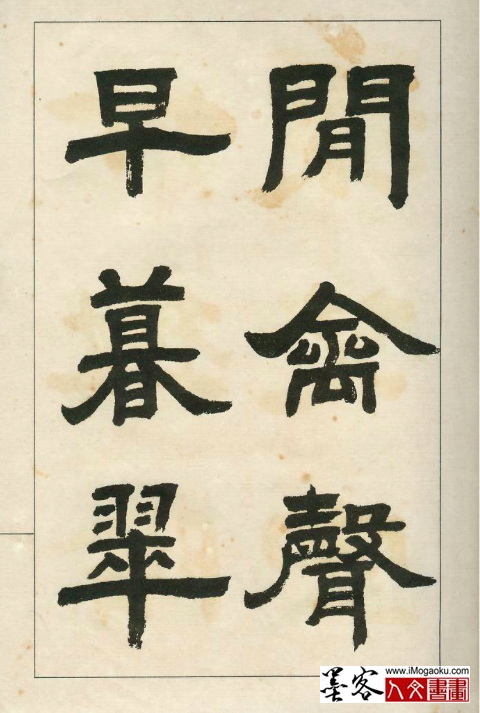 閒禽聲
早暮翠
墨客
www.iMogaoku.com
人文書畫